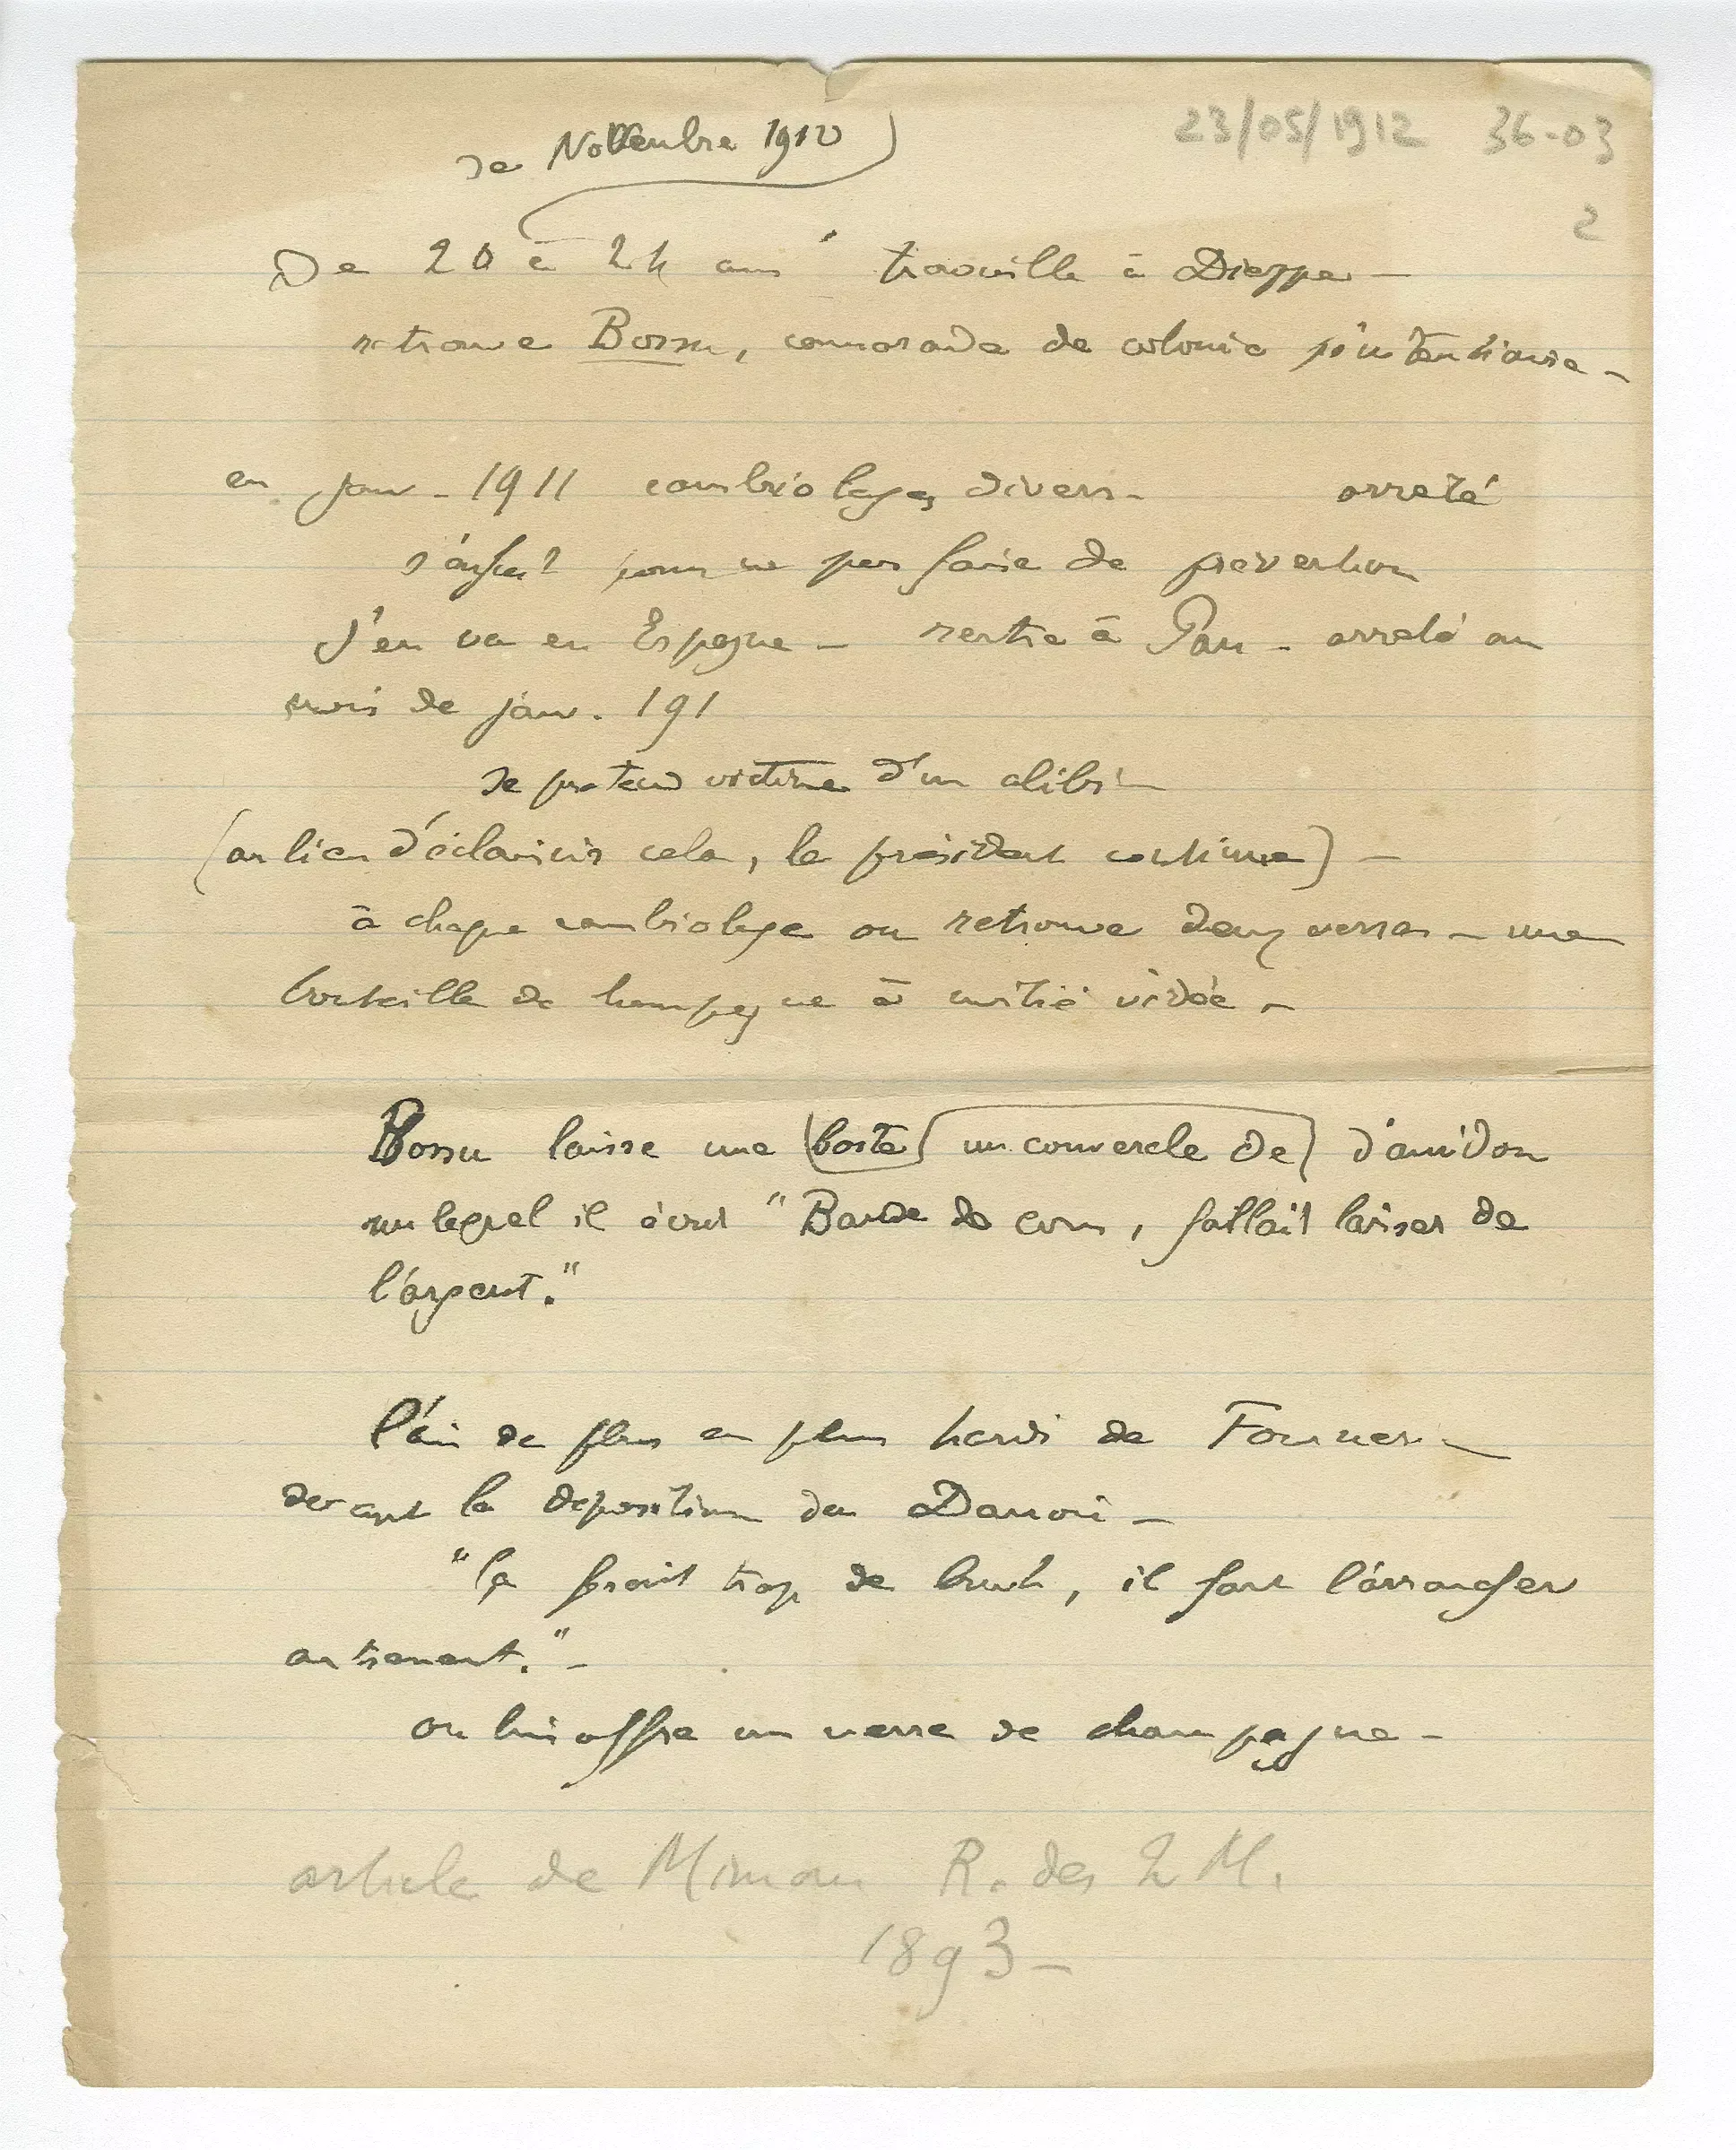 23/05/1912 36-03
2
de Novembre 1910
De 20 à 24 ans travaille à Dieppe –
retrouve Bossu, camarade de colonie pénitentiaire –
en janv. 1911 cambriolages divers – arreté
s'enfuit pour ne pas faire de prevention
s'en va en Espagne – rentre à Pau – arreté au
mois de janv. 191
se pretend victime d'un alibi –
(au lieu d'éclaircir cela, le président continue) –
à chaque cambriolage on retrouve deux verres – une
bouteille de champagne à moitié vidée –
Bossu laisse une boite un couvercle de d'amidon
sur lequel il écrit "Bande de cons, fallait laisser de
l'argent."
l'air de plus en plus hardi de
devant la deposition de
"ça ferait trop de bruit, il faut l'arranger
autrement." –
on lui offre un verre de champagne –
article de Mimau R. des 2 M.
1893 –